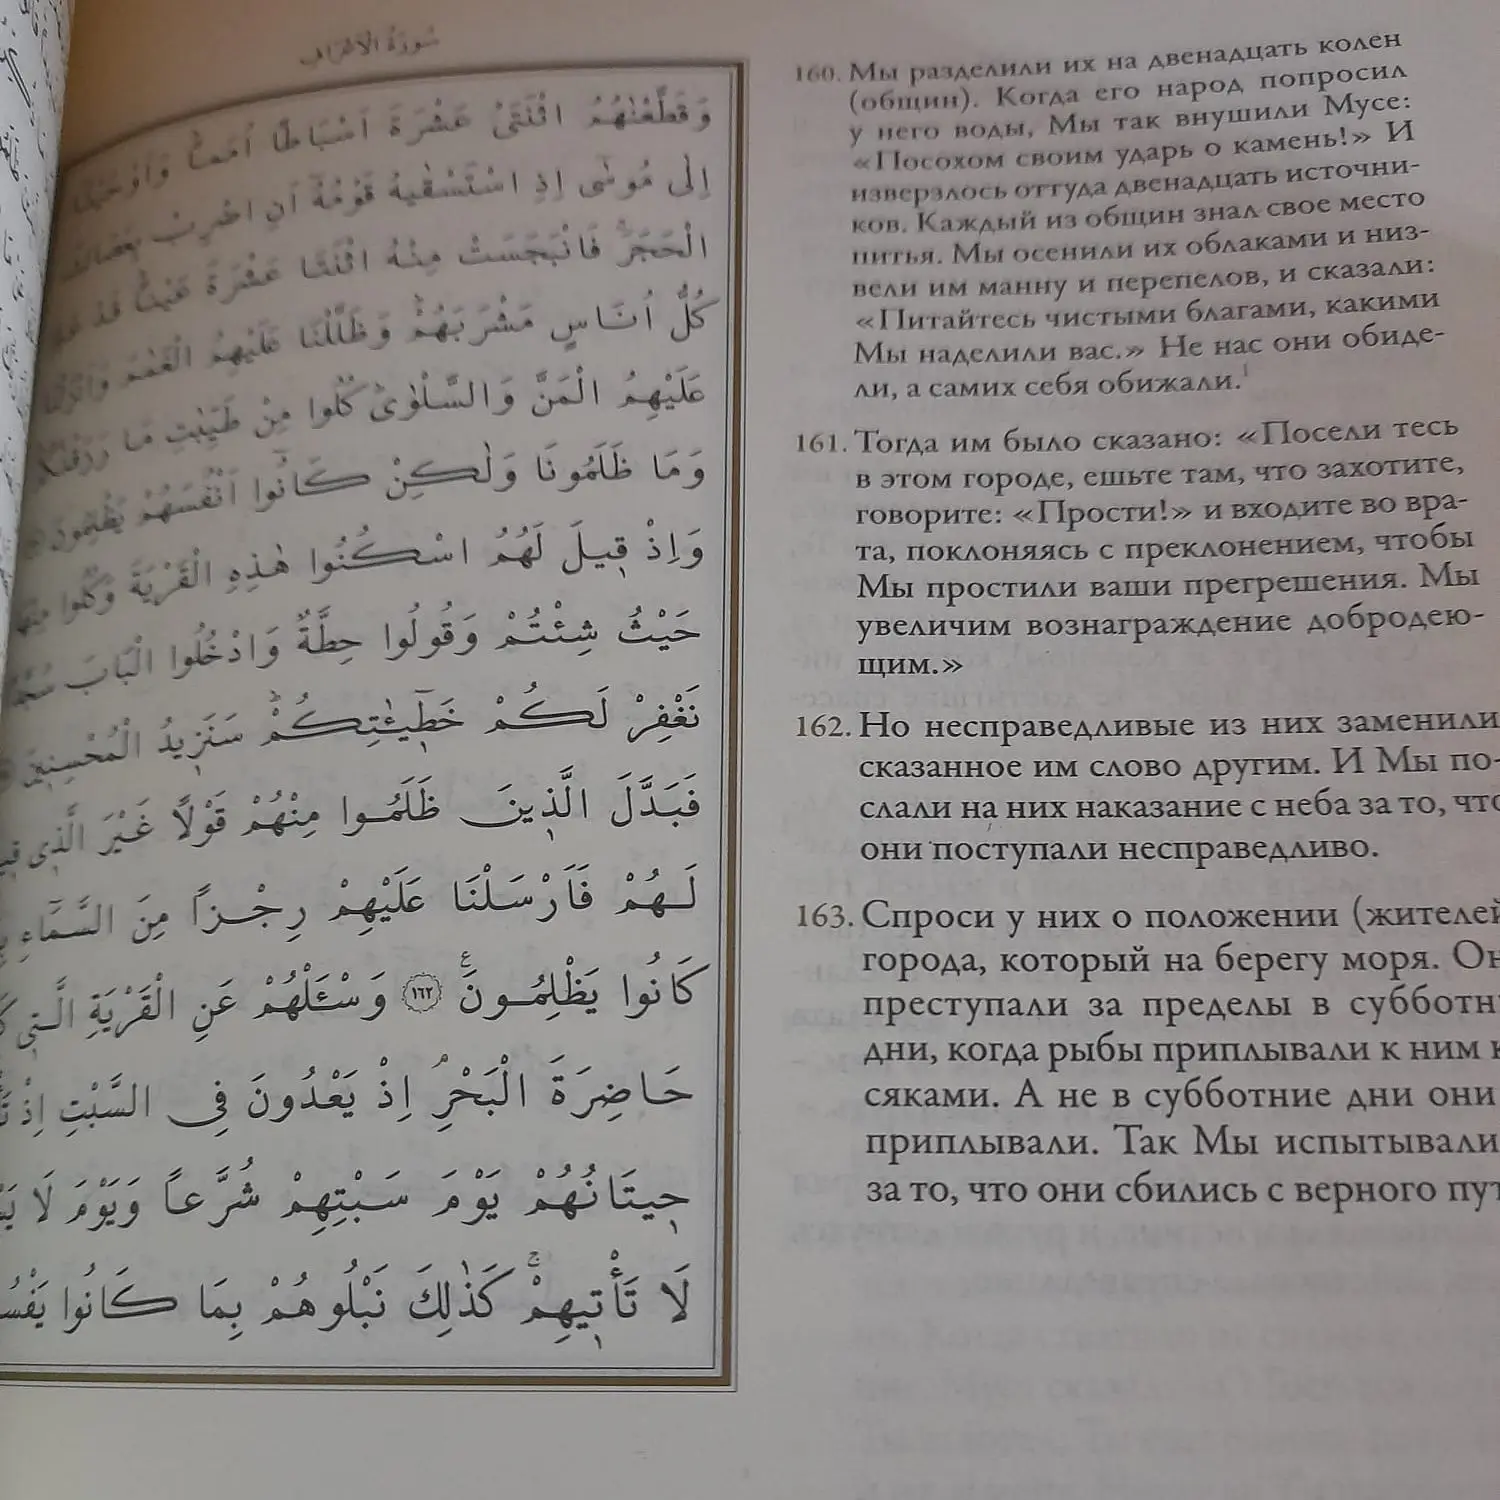 سورة الاعراف
وَقَطَّعْنَاهُمُ اثْنَتَىْ عَشْرَةَ اَسْبَاطًا اُمَمًا وَاَوْحَيْنَا
اِلٰى مُوسٰٓى اِذِ اسْتَسْقٰيهُ قَوْمُهُٓ اَنِ اضْرِبْ بِعَصَاكَ
الْحَجَرَ فَانْبَجَسَتْ مِنْهُ اثْنَتَا عَشْرَةَ عَيْنًا قَدْ
كُلُّ اُنَاسٍ مَشْرَبَهُمْ وَظَلَّلْنَا عَلَيْهِمُ الْغَمَامَ وَاَنْزَلْنَا
عَلَيْهِمُ الْمَنَّ وَالسَّلْوٰى كُلُوا مِنْ طَيِّبَاتِ مَا رَزَقْنَاكُمْ
وَمَا ظَلَمُونَا وَلٰكِنْ كَانُٓوا اَنْفُسَهُمْ يَظْلِمُونَ
وَاِذْ قِيلَ لَهُمُ اسْكُنُوا هٰذِهِ الْقَرْيَةَ وَكُلُوا مِنْهَا
حَيْثُ شِئْتُمْ وَقُولُوا حِطَّةٌ وَادْخُلُوا الْبَابَ
نَغْفِرْ لَكُمْ خَطِٓيـَٔاتِكُمْ سَنَزِيدُ الْمُحْسِنِينَ
فَبَدَّلَ الَّذِينَ ظَلَمُوا مِنْهُمْ قَوْلًا غَيْرَ الَّذِى
لَهُمْ فَاَرْسَلْنَا عَلَيْهِمْ رِجْزاً مِنَ السَّمَٓاءِ
كَانُوا يَظْلِمُونَ ١٦٢ وَسْـَٔلْهُمْ عَنِ الْقَرْيَةِ الَّتِى
حَاضِرَةَ الْبَحْرِ اِذْ يَعْدُونَ فِى السَّبْتِ اِذْ
حِيتَانُهُمْ يَوْمَ سَبْتِهِمْ شُرَّعاً وَيَوْمَ لَا
لَا تَأْتِيهِمْ كَذٰلِكَ نَبْلُوهُمْ بِمَا كَانُوا
160. Мы разделили их на двенадцать колен
(общин). Когда его народ попросил
у него воды, Мы так внушили Мусе:
«Посохом своим ударь о камень!» И
изверзлось оттуда двенадцать источни-
ков. Каждый из общин знал свое место
питья. Мы осенили их облаками и низ-
вели им манну и перепелов, и сказали:
«Питайтесь чистыми благами, какими
Мы наделили вас.» Не нас они обиде-
ли, а самих себя обижали.¹
161. Тогда им было сказано: «Посели тесь
в этом городе, ешьте там, что захотите,
говорите: «Прости!» и входите во вра-
та, поклоняясь с преклонением, чтобы
Мы простили ваши прегрешения. Мы
увеличим вознаграждение добродею-
щим.»
162. Но несправедливые из них заменили
сказанное им слово другим. И Мы по-
слали на них наказание с неба за то, что
они поступали несправедливо.
163. Спроси у них о положении (жителей
города, который на берегу моря. Он
преступали за пределы в субботн
дни, когда рыбы приплывали к ним к
сяками. А не в субботние дни они
приплывали. Так Мы испытывали
за то, что они сбились с верного пут